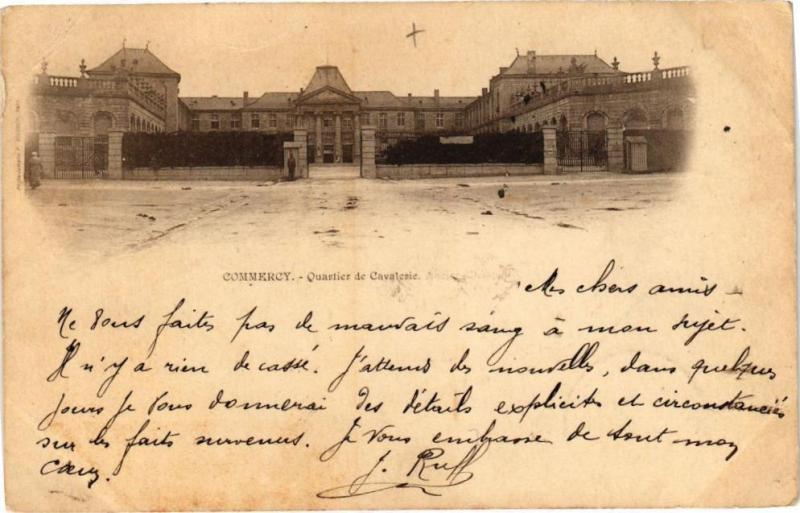 COMMERCY. - Quartier de Cavalerie.
Mes chers amis
Ne vous faites pas de mauvais sang à mon sujet.
Il n'y a rien de cassé. J'attends des nouvelles, dans quelques
jours je vous donnerai des détails explicites et circonstanciés
sur les faits survenus. Je vous embrasse de tout mon
cœur.
J. Ruff